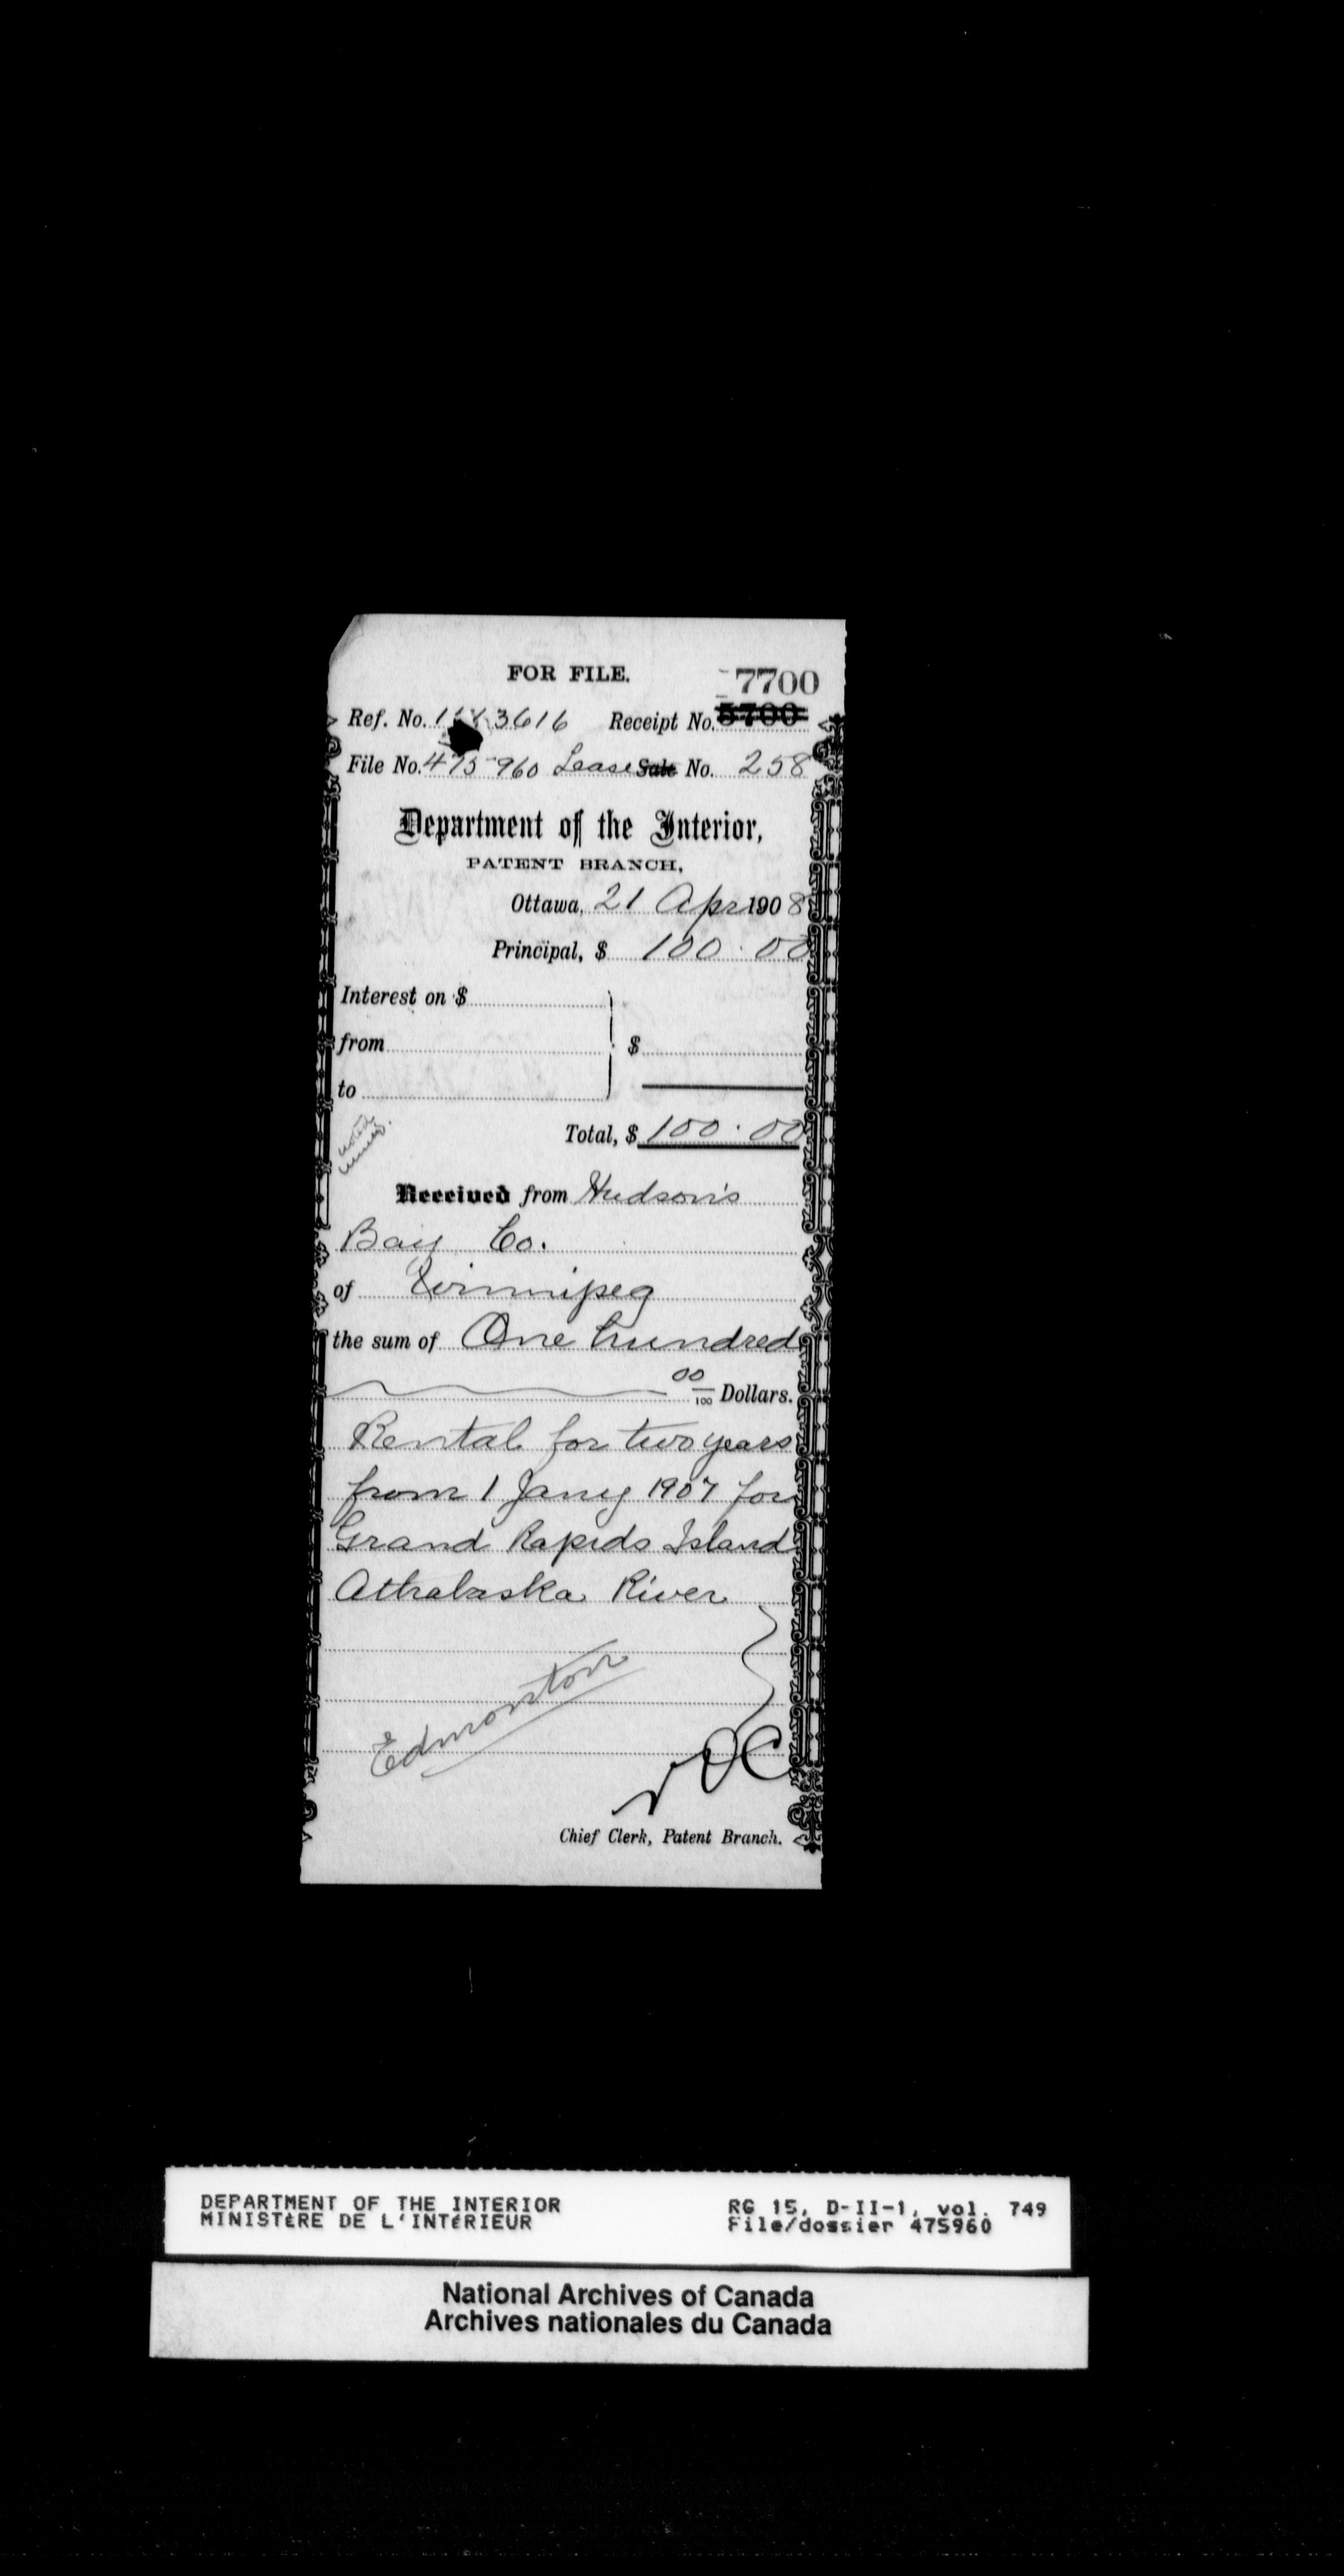 FOR FILE.
7700
Ref. No. 3616 Receipt No. 5700
File No. 475960 Lease Sale No. 258
Department of the Interior,
PATENT BRANCH,
Ottawa, 21 Apr 1908
Principal, $ 100.00
Interest on $
from $
to
Total, $ 100.00
noted
Received from Hudson's
Bay Co.
of Winnipeg
the sum of One hundred
00/100 Dollars.
Rental for two years
from 1 Jany 1907 for
Grand Rapids Island
Athabaska River
Edmonton
Chief Clerk, Patent Branch.
DEPARTMENT OF THE INTERIOR RG 15, D-II-1, vol. 749
MINISTÈRE DE L'INTÉRIEUR File/dossier 475960
National Archives of Canada
Archives nationales du Canada